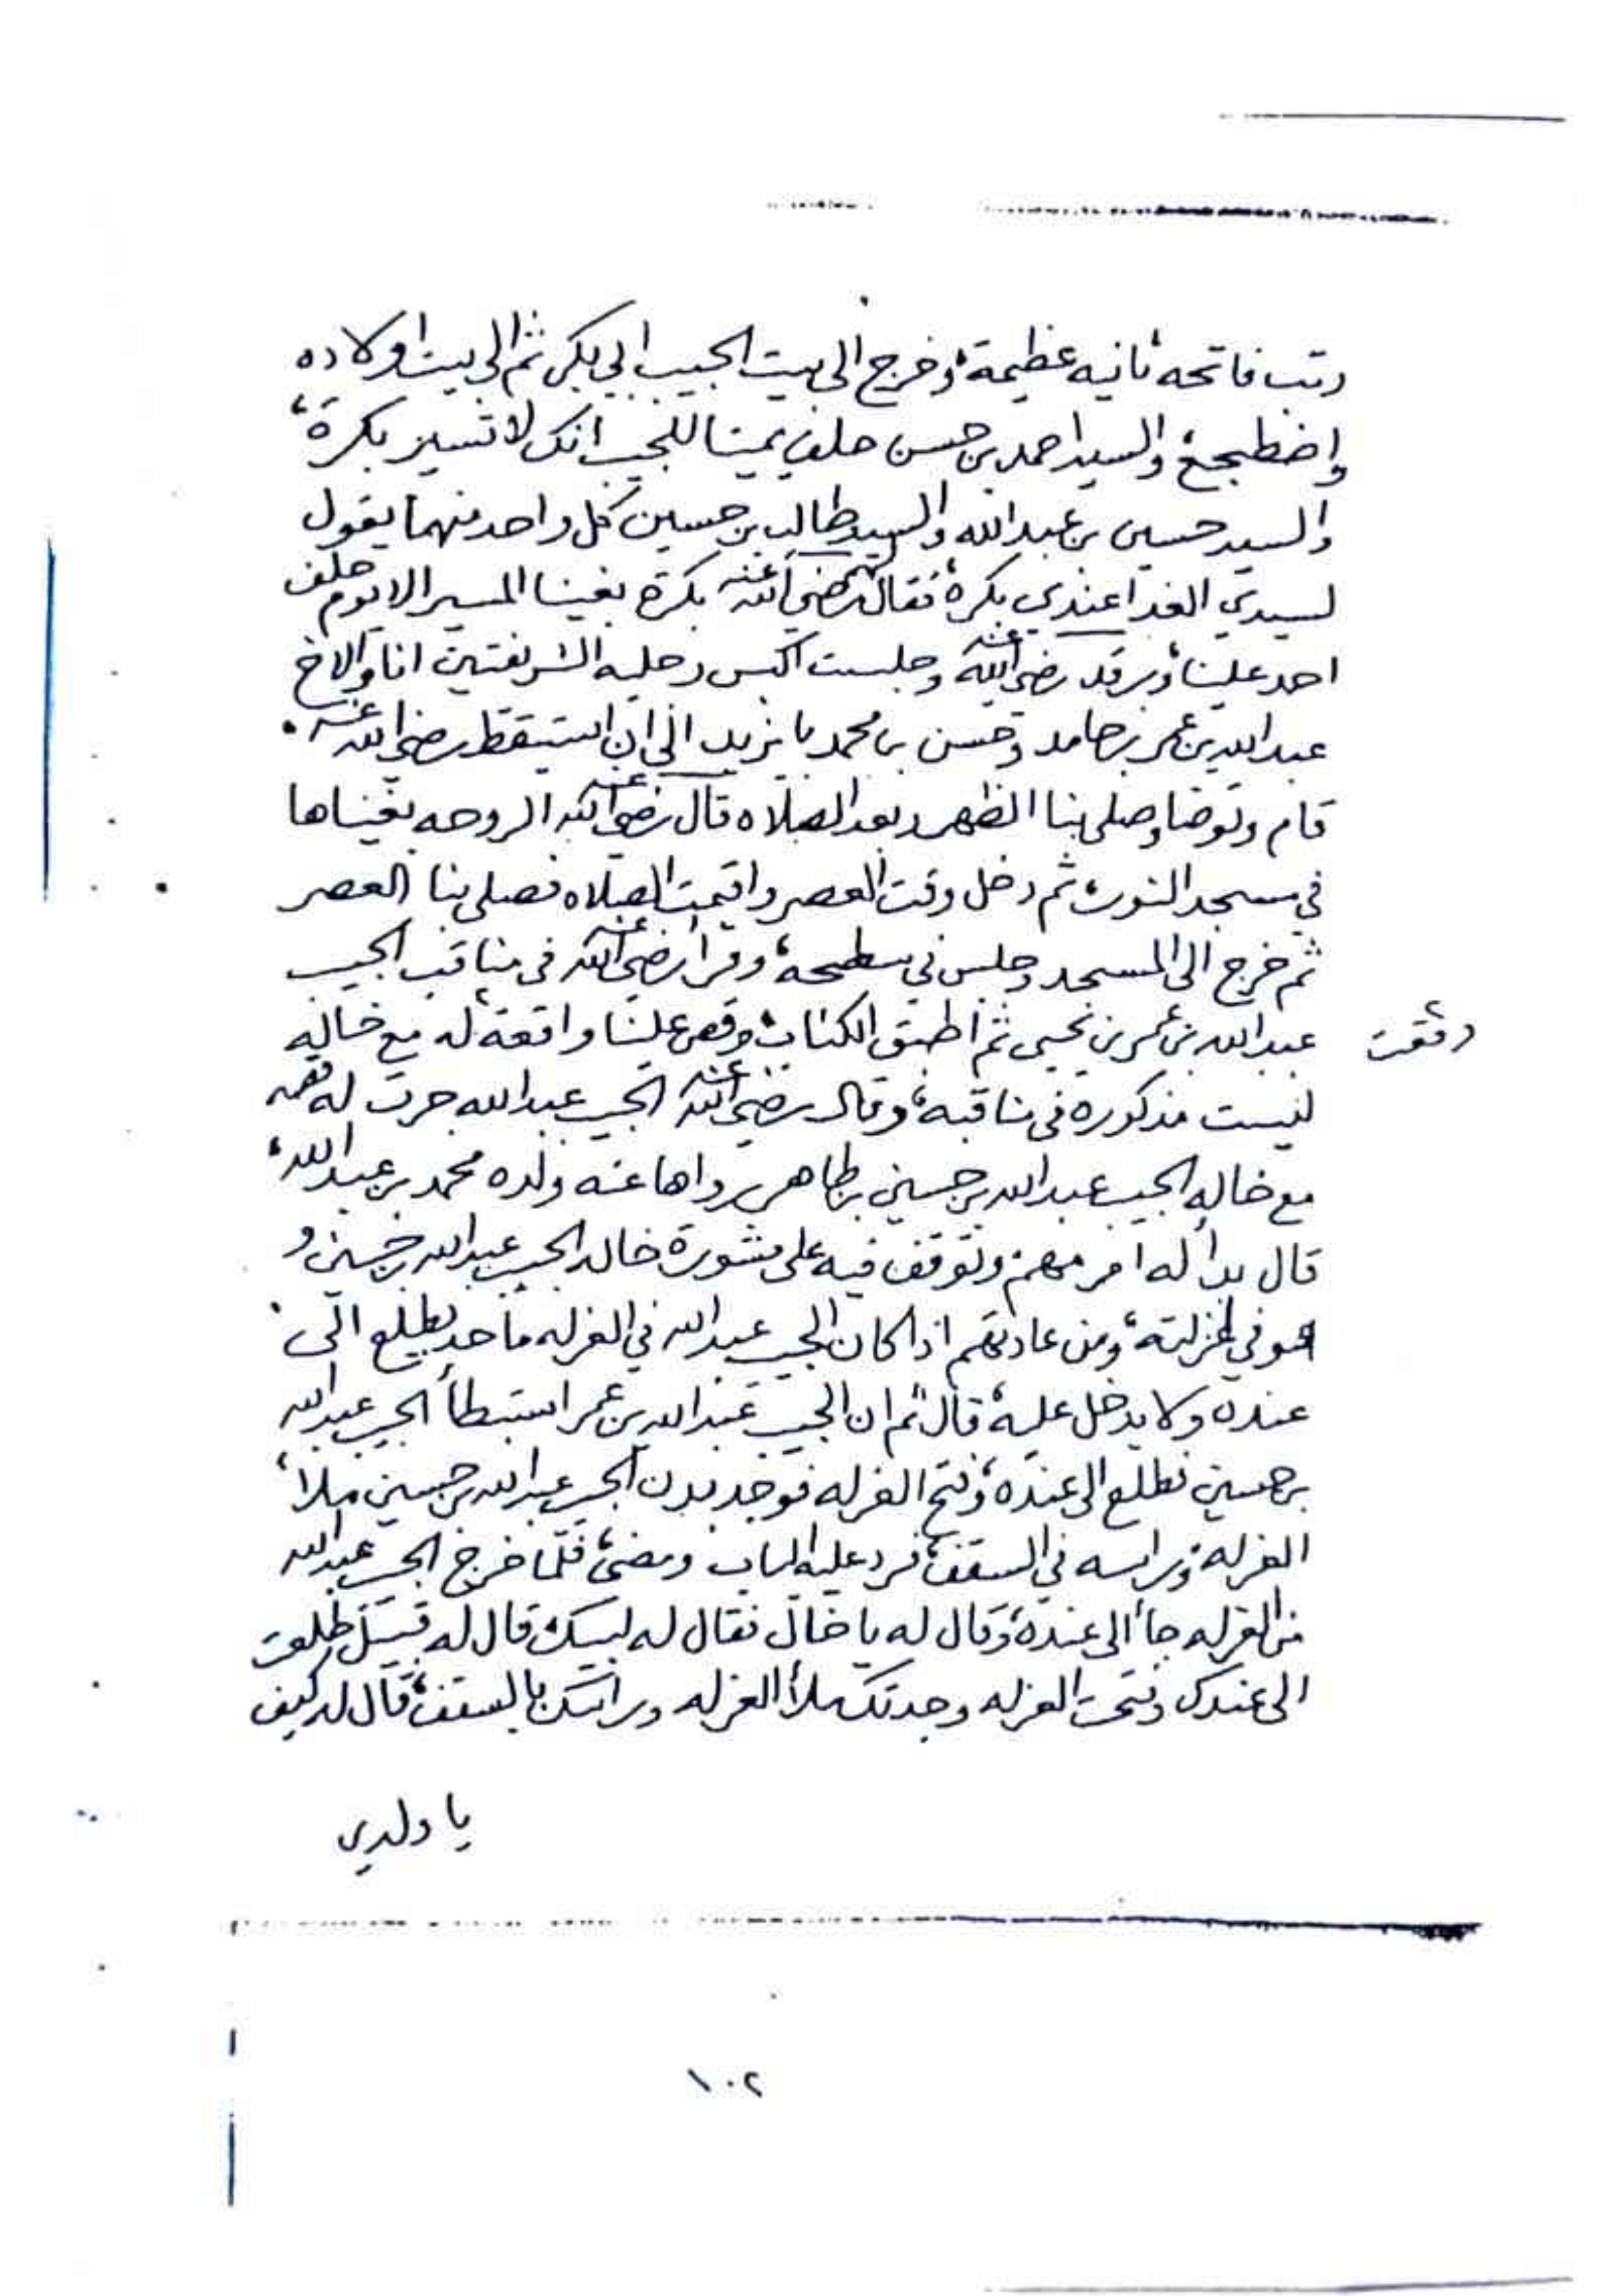 رتب فاتحه ثانيه عظيمة، وخرج الى بيت الحبيب ابي بكر ثم الى بيت اولاده
واضطجع، والسيد احمد بن حسن حلف يمينا للحبيب انك لا تسير بكرة،
والسيد حسين بن عبدالله والسيد طالب بن حسين كل واحد منهما يقول
لسيدي الغدا عندي بكرة، فقال لهم رضي الله عنه بكرة بغينا المسير الا يوم حلف
احد علينا، ورقد رضي الله عنه وجلست اكبس رجليه الشريفتين انا والاخ
عبدالله بن عمر بن حامد وحسن بن محمد با يزيد الى ان استيقظ رضي الله عنه.
قام وتوضا وصلى بنا الظهر وبعد الصلاه قال رضي الله عنه الروحه بغيناها
في مسجد النور، ثم دخل وقت العصر واقيمت الصلاه فصلى بنا العصر
ثم خرج الى المسجد وجلس في سطحه، وقرأ رضي الله عنه في مناقب الحبيب
عبدالله بن عمر بن يحيى ثم اطبق الكتاب، وقص علينا واقعة له مع خاله
وقعت
ليست مذكوره في مناقبه، وقال رضي الله عنه الحبيب عبدالله جرت له قصه
مع خاله الحبيب عبدالله بن حسين بن طاهر رواها عنه ولده محمد بن عبدالله،
قال بدأ له امر مهم وتوقف فيه على مشورة خاله الحبيب عبدالله بن حسين و
هو في عزلته، ومن عادتهم اذا كان الحبيب عبدالله في العزله ما حد يطلع الى
عنده ولا يدخل عليه، قال ثم ان الحبيب عبدالله بن عمر استبطأ الحبيب عبدالله
بن حسين فطلع الى عنده، وفتح العزله فوجد بدن الحبيب عبدالله بن حسين ملأ،
العزله، وراسه في السقف، فرد عليه الباب ومضى، فلما خرج الحبيب عبدالله
من العزله جاء الى عنده، وقال له يا خال فقال له لبيك، قال له قبيل طلعت
الى عندك وفتحت العزله وجدتك ملأ العزله وراسك بالسقف، قال له كيف
يا ولدي
١٠٢